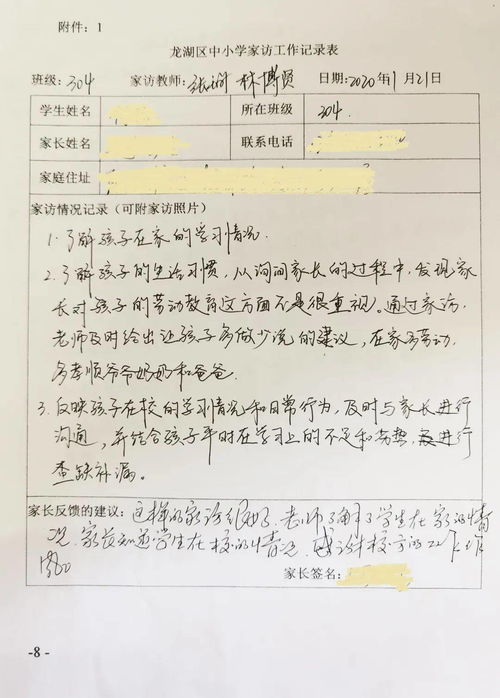 附件：1
龙湖区中小学家访工作记录表
班级：304 家访教师：张 林博贤 日期：2020年1月21日
学生姓名 所在班级 304.
家长姓名 联系电话
家庭住址
家访情况记录（可附家访照片）
1.了解孩子在家的学习情况.
2.了解孩子的生活习惯，从询问家长的过程中，发现家
长对孩子的劳动教育这方面不是很重视。通过家访，
老师及时给出让孩子多做少说的建议，在家多劳动.
多孝顺爷爷奶奶和爸爸.
3.反映孩子在校的学习情况和日常行为，及时与家长进行
沟通，并结合孩子平时在学习上的不足和劣势，进行
查缺补漏。
家长反馈的建议：这样的家访很好.老师了解了学生在家的情
况.家长知道学生在校的情况.感谢校方的工作作
风
家长签名：
-8-